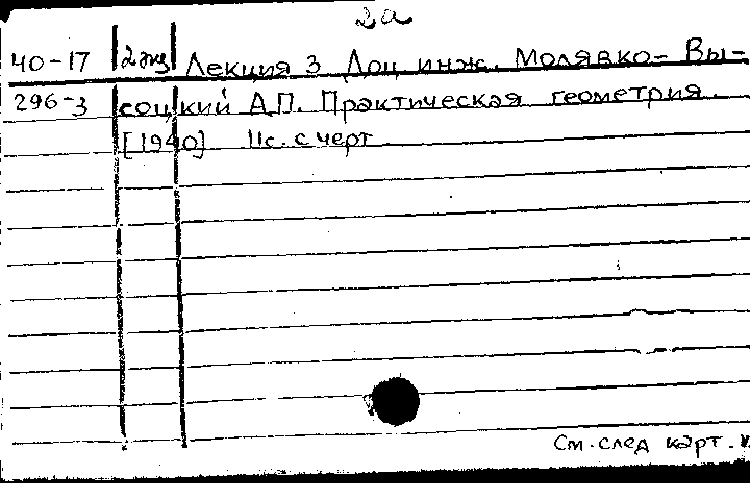 2а
40-17 2 экз Лекция 3 Доц инж. Молявко- Вы-
296-3 соцкий А.П. Практическая геометрия.
[1940] 11с. с черт
См. след карт.